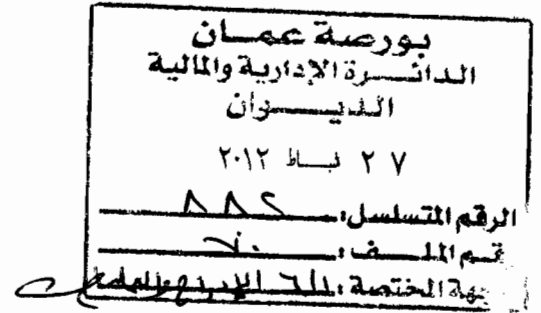 بورصة عمان
الدائرة الإدارية والمالية
الديوان
٢٧ شباط ٢٠١٢
الرقم المتسلسل: ٨٨٢
رقم الملف:
الجهة المختصة: الإدراج